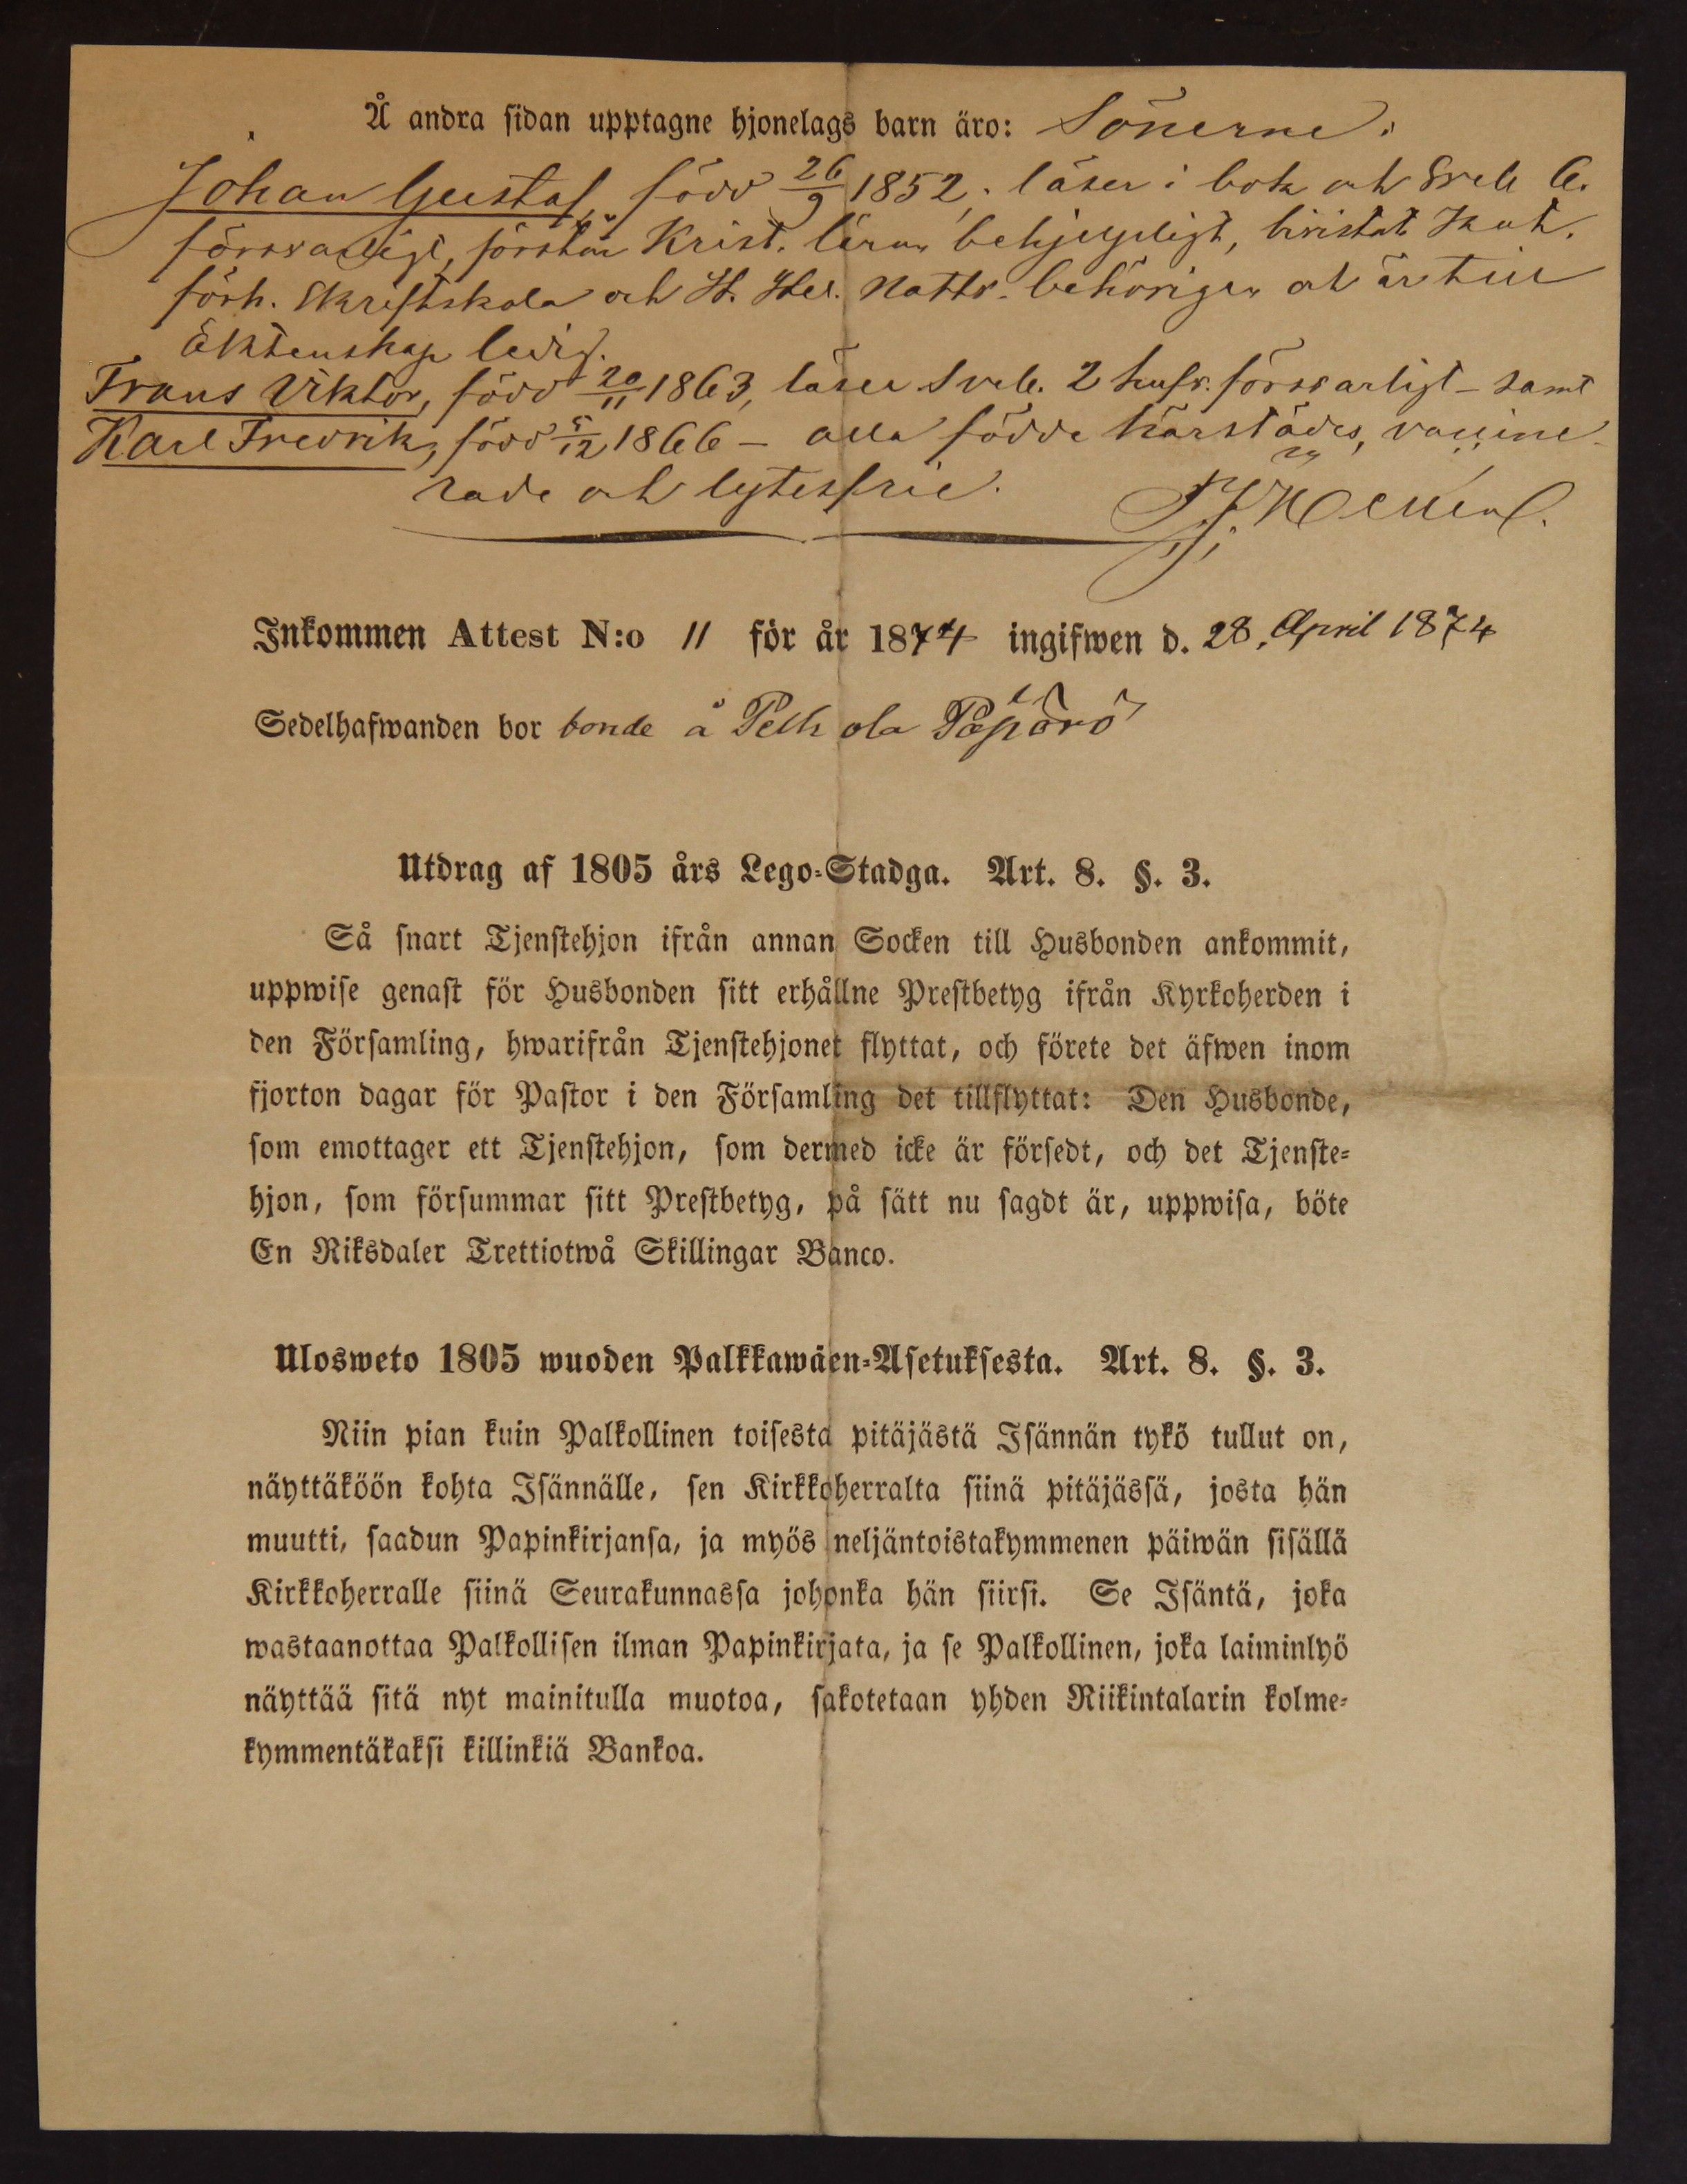 Å andra sidan upptagne hjonelags barn äro: Sönerne:
Johan Gustaf, född 26/9 1852, läser i bok och Sveb. C.
försvarligt, förstår Krist. läran behjelpligt, bivistat Kat.
förh. Skriftskola och H. Hel. Nattv. behörigen och är till
äktenskap ledig.
Frans Viktor, född 20/11 1863, läser Sveb. 2 hufv. försvarligt – samt
Karl Fredrik, född 5/12 1866 – alla födde härstädes, vaccine-
rade och lytesfrie.
Inkommen Attest N:o 11 för år 1874 ingifwen d. 28. April 1874
Sedelhafwanden bor bonde å Pelkola
Utdrag af 1805 års Lego-Stadga. Art. 8. §. 3.
Så snart Tjenstehjon ifrån annan Socken till Husbonden ankommit,
uppwise genast för Husbonden sitt erhållne Prestbetyg ifrån Kyrkoherden i
den Församling, hwarifrån Tjenstehjonet flyttat, och förete det äfwen inom
fjorton dagar för Pastor i den Församling det tillflyttat: Den Husbonde,
som emottager ett Tjenstehjon, som dermed icke är försedt, och det Tjenste-
hjon, som försummar sitt Prestbetyg, på sätt nu sagdt är, uppwisa, böte
En Riksdaler Trettiotwå Skillingar Banco.
Ulosweto 1805 wuoden Palkkawäen-Asetuksesta. Art. 8. §. 3.
Niin pian kuin Palkollinen toisesta pitäjästä Isännän tykö tullut on,
näyttäköön kohta Isännälle, sen Kirkkoherralta siinä pitäjässä, josta hän
muutti, saadun Papinkirjansa, ja myös neljäntoistakymmenen päiwän sisällä
Kirkkoherralle siinä Seurakunnassa johonka hän siirsi. Se Isäntä, joka
wastaanottaa Palkollisen ilman Papinkirjata, ja se Palkollinen, joka laiminlyö
näyttää sitä nyt mainitulla muotoa, sakotetaan yhden Riikintalarin kolme-
kymmentäkaksi killinkiä Bankoa.